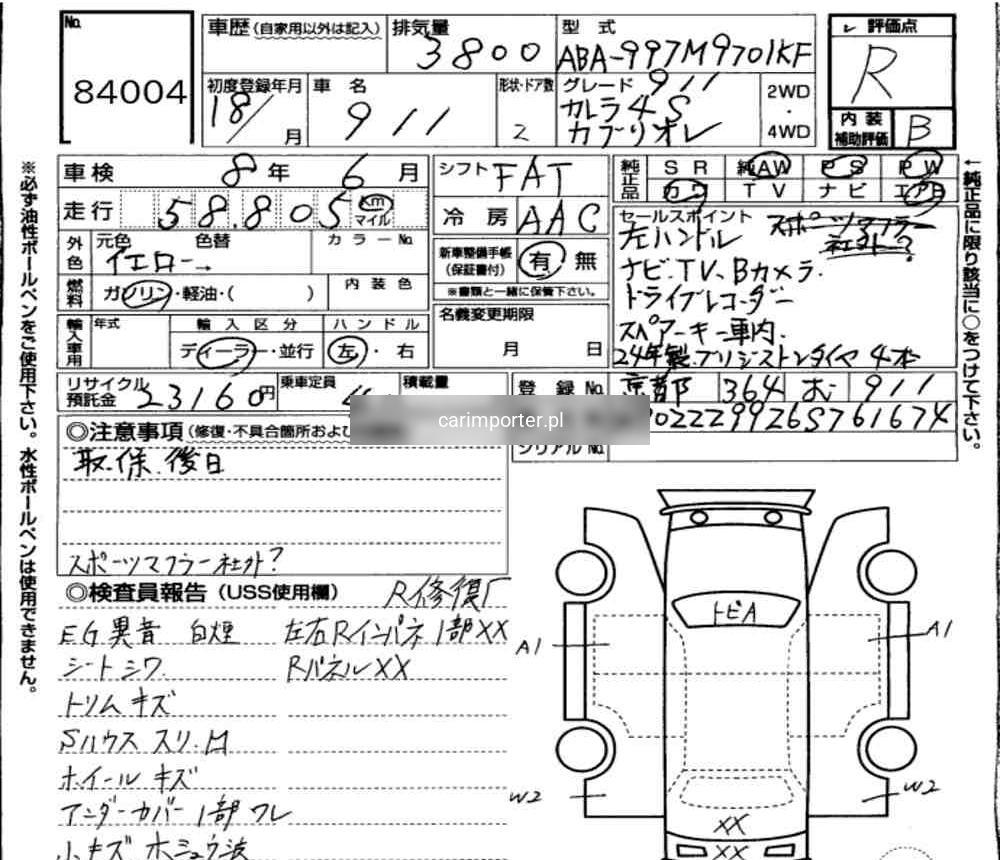 No.
84004
車歴(自家用以外は記入)
排気量
3800
型式
ABA-997M9701KF
評価点
R
初度登録年月
18/ 月
車名
911
形状・ドア数
2
グレード 911
カレラ4S
カブリオレ
2WD
・
4WD
内装
補助評価
B
車検 8年 6月
走行 58.805 Km マイル
外色 元色 色替 カラーNo.
イエロー→
燃料 ガソリン・軽油・( )
内装色
輸入車用 年式 輸入区分 ハンドル
ディーラー・並行 左・右
リサイクル預託金 23160円
乗車定員
積載量
シフト FAT
冷房 AAC
新車整備手帳(保証書付) 有 無
※書類と一緒に保管下さい。
名義変更期限
月 日
純正品 SR 純AW PS PW
カワ TV ナビ エアB
セールスポイント
スポーツマフラー社外?
左ハンドル
ナビ.TV.Bカメラ.
ドライブレコーダー
スペアーキー車内.
24年製ブリジストンタイヤ4本
登録No. 京都 364 む 911
902229926S761674
シリアルNo.
carimporter.pl
◎注意事項(修復・不具合箇所およ
取.保.後日
スポーツマフラー社外?
◎検査員報告(USS使用欄)
R修復歴
EG異音 白煙
左右Rインパネ1部XX
シートシワ
RパネルXX
トリムキズ
Sハウス スリ.凹
ホイールキズ
アンダーカバー1部ワレ
小キズ ホシュウ波
トビA
A1
A1
W2
W2
XX
XX
※必ず油性ボールペンをご使用下さい。水性ボールペンは使用できません。
←純正品に限り該当に○をつけて下さい。